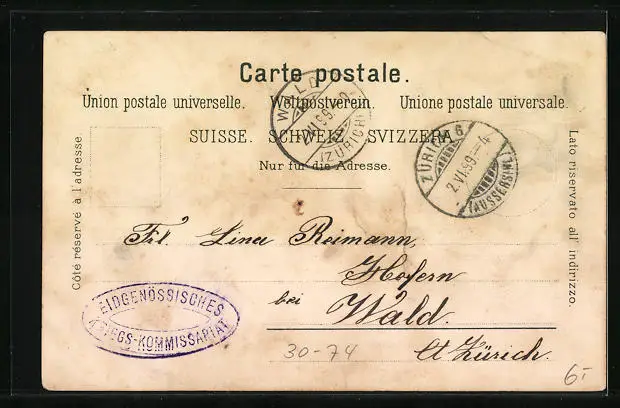 Carte postale.
Union postale universelle. Weltpostverein. Unione postale universale.
SUISSE. SCHWEIZ. SVIZZERA.
Nur für die Adresse.
Côté réservé à l'adresse.
Lato riservato all' indirizzo.
WALD
2.VI.99
(ZÜRICH)
ZÜRICH 6
2.VI.99.-4
(AUSSERSIHL)
Frl. Lina Reimann,
Hofern
bei Wald.
Ct. Zürich.
EIDGENÖSSISCHES
KRIEGS-KOMMISSARIAT
30-74
6.-